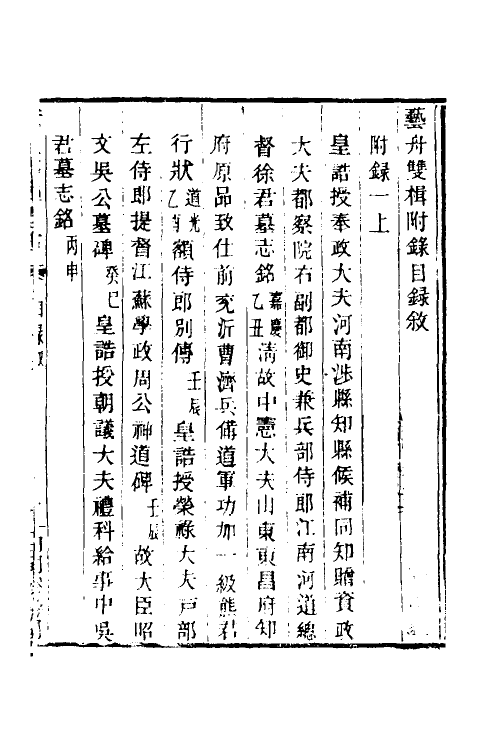 藝舟雙楫附錄目録敘
附録一上
皇誥授奉政大夫河南渉縣知縣候補同知贈資政
大夫都察院右副都御史兼兵部侍郎江南河道總
督徐君墓志銘嘉慶乙丑淸故中憲大夫山東東昌府知
府原品致仕前兖沂曹濟兵備道軍功加一級熊君
行狀道光乙酉額侍郎別傳壬辰皇誥授榮祿大夫戸部
左侍郎提督江蘇學政周公神道碑壬辰故大臣昭
文吳公墓碑癸巳皇誥授朝議大夫禮科給事中吳
君墓志銘丙申